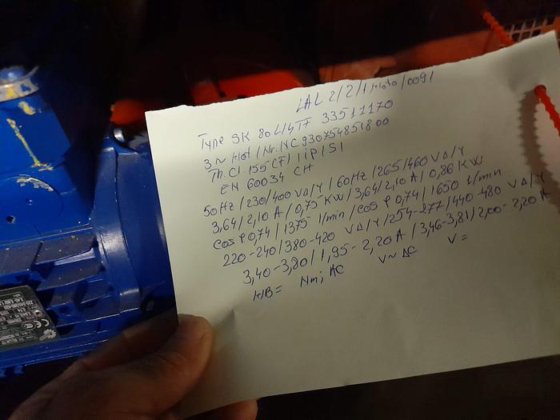 LAL 2/2/1 moto/0091
Type SK 80L/4 TF 33511170
3~ Mot/Nr.NC 930754851800
Th.Cl 155 (F) IP 51
EN 60034 CH
50Hz/230/400 VΔ/Y/60Hz/265/460 VΔ/Y
3,64/2,10 A/0,75 KW/3,64/2,10 A/0,86 KW
cos φ 0,74/1375 1/min/cos φ 0,74/1650 1/min
220-240/380-420 VΔ/Y/254-277/440-480 VΔ/Y
3,40-3,80/1,95-2,20 A/3,46-3,81/2,00-2,20 A
H/B= Nm; AC V~ AC V=